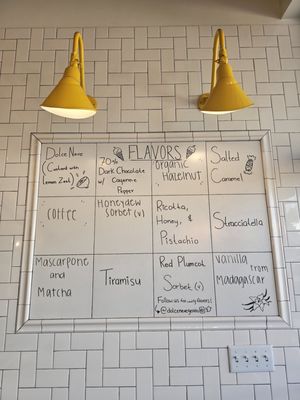 FLAVORS
Dolce Neve
(Custard with
Lemon Zest)
70%
Dark Chocolate
w/ Cayenne
Pepper
Organic
Hazelnut
Salted
Caramel
Coffee
Honeydew
Sorbet (v)
Ricotta,
Honey, &
Pistachio
Stracciatella
Mascarpone
and
Matcha
Tiramisu
Red Plumcot
Sorbet
(v)
Follow us for
Vanilla
from
Madagascar